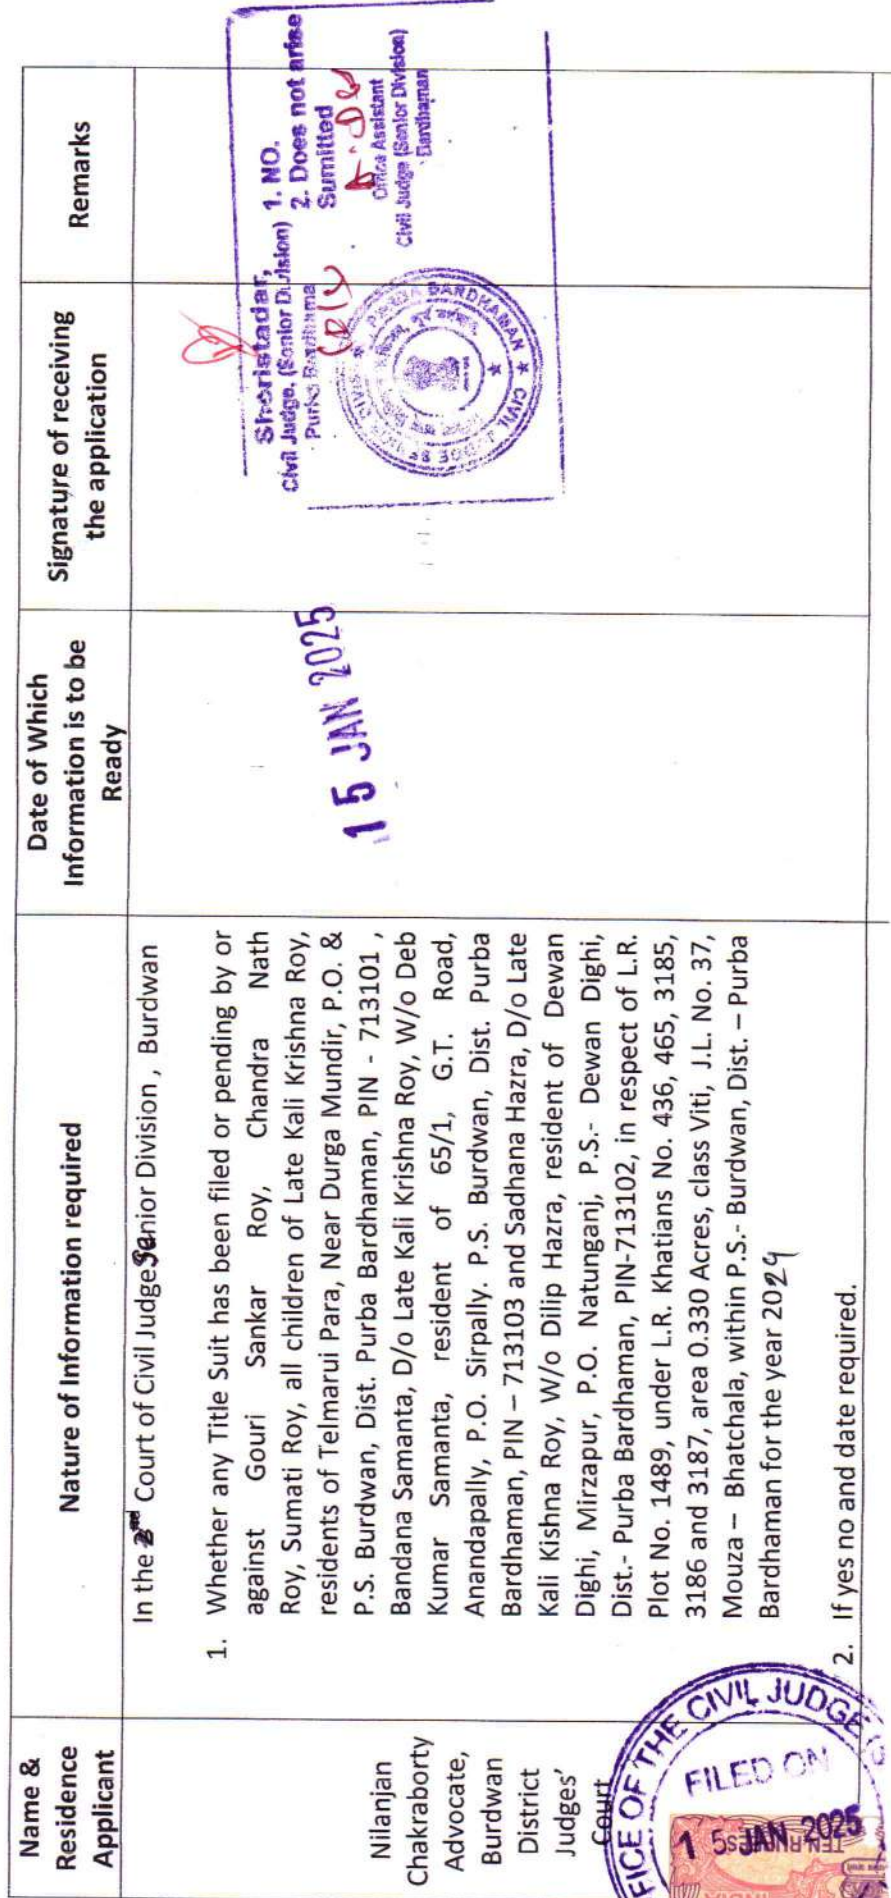 Name &
Residence
Applicant
Nature of Information required
Date of Which
Information is to be
Ready
Signature of receiving
the application
Remarks
Nilanjan
Chakraborty
Advocate,
Burdwan
District
Judges'
Court
In the Court of Civil Judge Senior Division , Burdwan
1. Whether any Title Suit has been filed or pending by or
against Gouri Sankar Roy, Chandra Nath
Roy, Sumati Roy, all children of Late Kali Krishna Roy,
residents of Telmarui Para, Near Durga Mundir, P.O. &
P.S. Burdwan, Dist. Purba Bardhaman, PIN - 713101 ,
Bandana Samanta, D/o Late Kali Krishna Roy, W/o Deb
Kumar Samanta, resident of 65/1, G.T. Road,
Anandapally, P.O. Sirpally. P.S. Burdwan, Dist. Purba
Bardhaman, PIN – 713103 and Sadhana Hazra, D/o Late
Kali Kishna Roy, W/o Dilip Hazra, resident of Dewan
Dighi, Mirzapur, P.O. Natunganj, P.S.- Dewan Dighi,
Dist.- Purba Bardhaman, PIN-713102, in respect of L.R.
Plot No. 1489, under L.R. Khatians No. 436, 465, 3185,
3186 and 3187, area 0.330 Acres, class Viti, J.L. No. 37,
Mouza – Bhatchala, within P.S.- Burdwan, Dist. – Purba
Bardhaman for the year 2024
2. If yes no and date required.
15 JAN 2025
Sheristadar,
Civil Judge, (Senior Division)
Purba Bardhaman
1. NO.
2. Does not arise
Sumitted
Office Assistant
Civil Judge (Senior Division)
Bardhaman
PURBA BARDHAMAN ★ CIVIL JUDGE
OFFICE OF THE CIVIL JUDGE
FILED ON
15 JAN 2025
TEN RUPEES